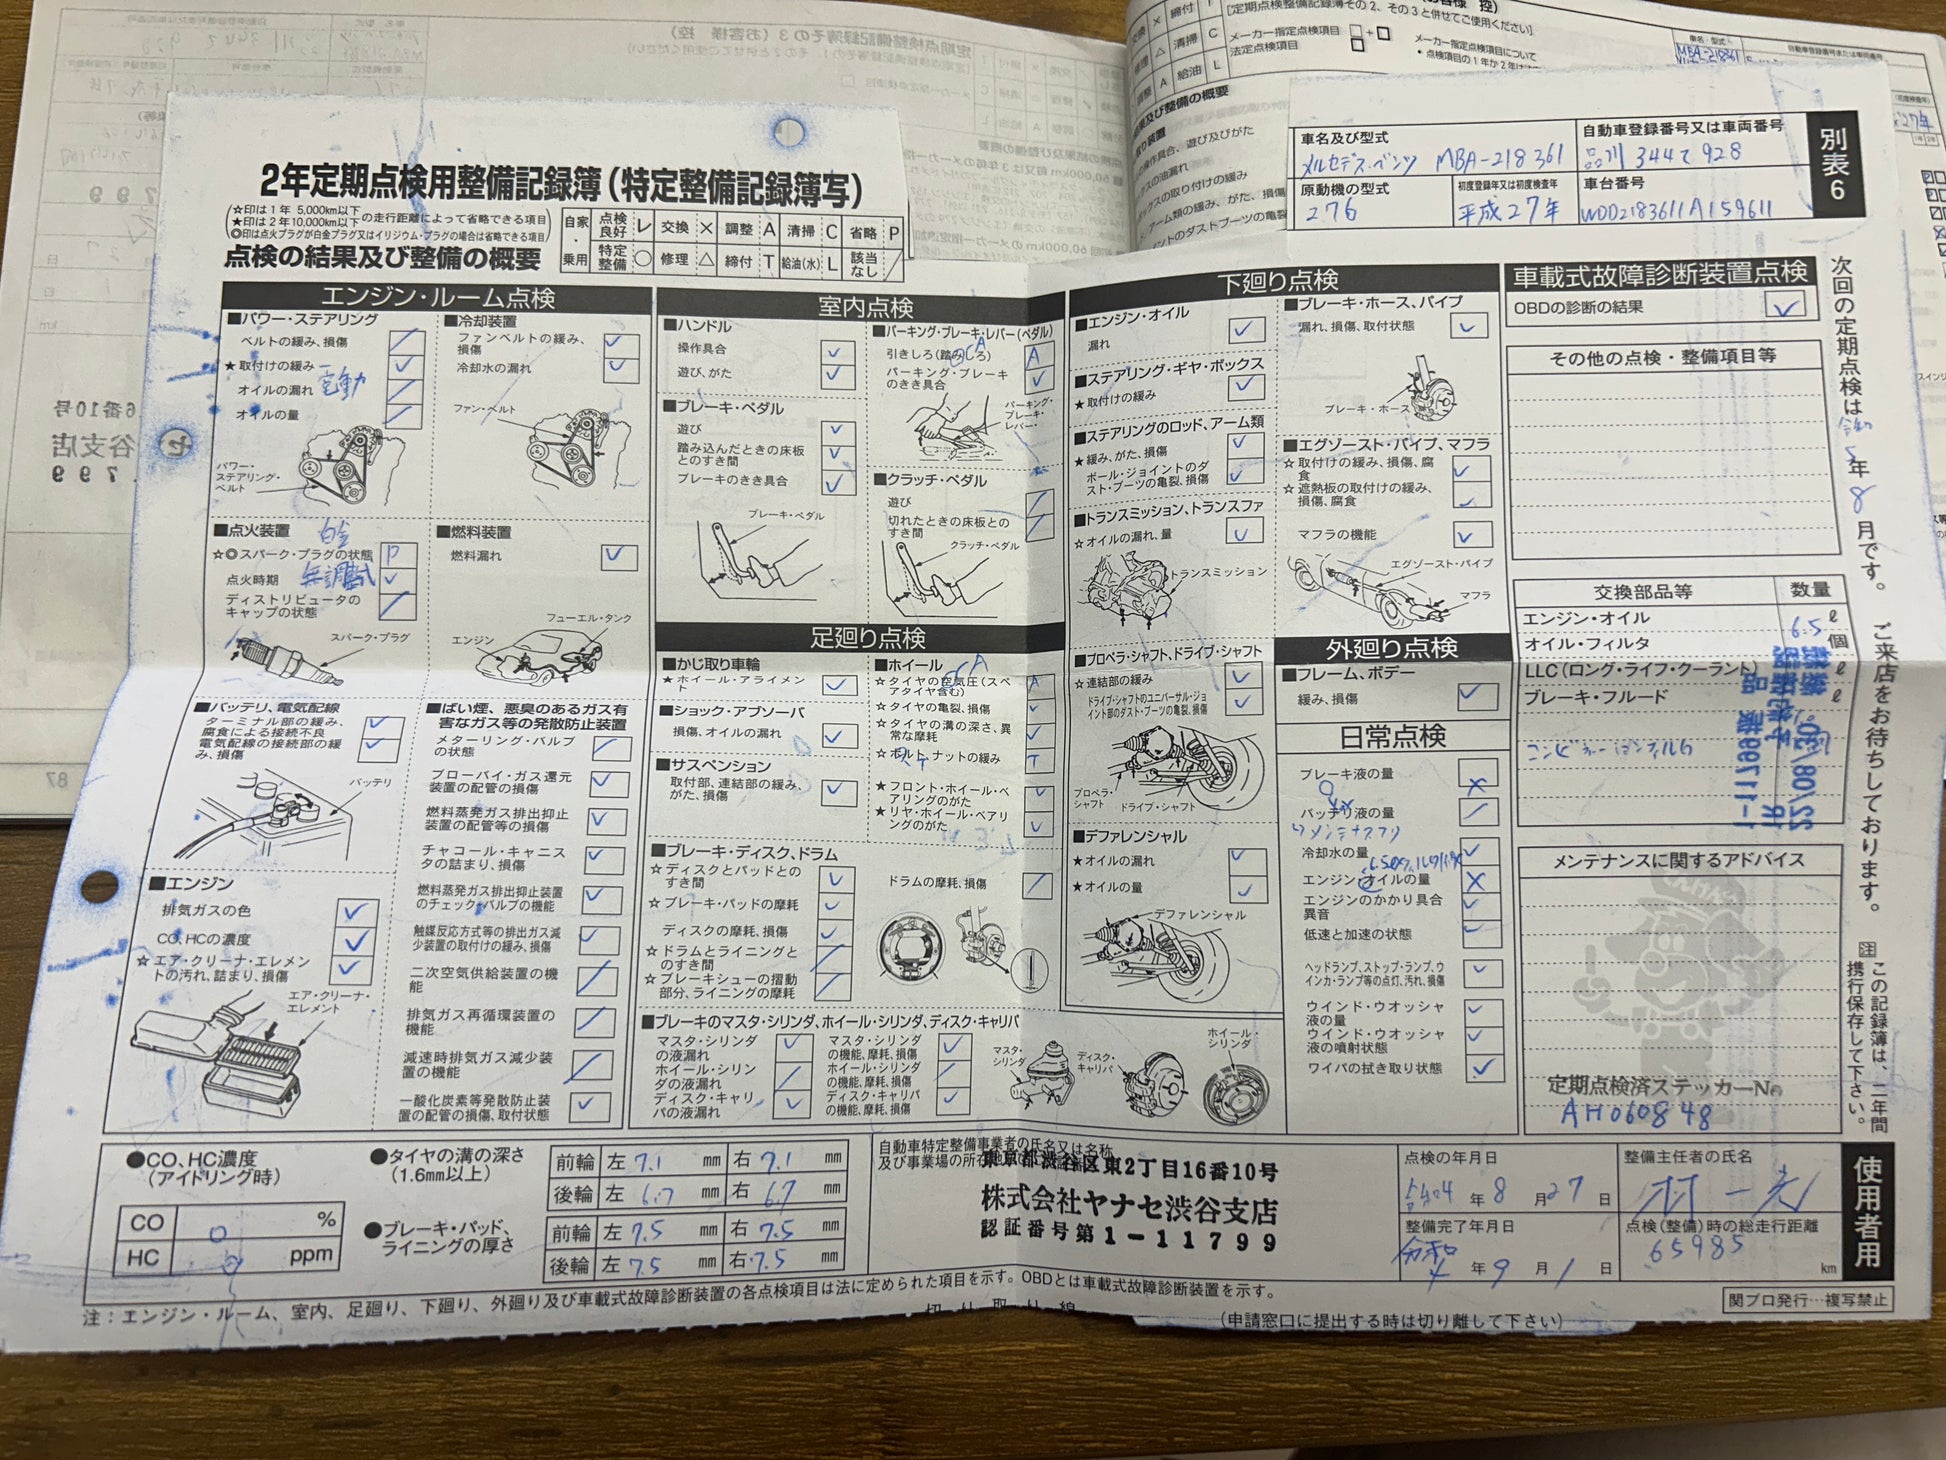 2年定期点検用整備記録簿(特定整備記録簿写)
☆印は1年 5,000km以下の走行距離によって省略できる項目
★印は2年10,000km以下
◎印は点火プラグが白金プラグ又はイリジウム・プラグの場合は省略できる項目
点検の結果及び整備の概要
自家・乗用 点検良好 レ 交換 × 調整 A 清掃 C 省略 P
特定整備 ○ 修理 △ 締付 T 給油(水) L 該当なし /
車名及び型式
メルセデス・ベンツ MBA-218361
自動車登録番号又は車両番号
品川 344 928
原動機の型式
276
初度登録年又は初度検査年
平成27年
車台番号
WDD2183611A159611
別表6
エンジン・ルーム点検
■パワー・ステアリング
ベルトの緩み、損傷
★取付けの緩み
電動
オイルの漏れ
オイルの量
パワー・ステアリング・ベルト
■冷却装置
ファンベルトの緩み、損傷
冷却水の漏れ
ファン・ベルト
■点火装置
白金
☆◎スパーク・プラグの状態 P
点火時期 無調整式
ディストリビュータのキャップの状態
スパーク・プラグ
■燃料装置
燃料漏れ
フューエル・タンク
エンジン
■バッテリ、電気配線
ターミナル部の緩み、腐食による接続不良
電気配線の接続部の緩み、損傷
バッテリ
■エンジン
排気ガスの色
CO、HCの濃度
☆エア・クリーナ・エレメントの汚れ、詰まり、損傷
エア・クリーナ・エレメント
■ばい煙、悪臭のあるガス有害なガス等の発散防止装置
メターリング・バルブの状態
ブローバイ・ガス還元装置の配管の損傷
燃料蒸発ガス排出抑止装置の配管等の損傷
チャコール・キャニスタの詰まり、損傷
燃料蒸発ガス排出抑止装置のチェック・バルブの機能
触媒反応方式等の排出ガス減少装置の取付けの緩み、損傷
二次空気供給装置の機能
排気ガス再循環装置の機能
減速時排気ガス減少装置の機能
一酸化炭素等発散防止装置の配管の損傷、取付状態
室内点検
■ハンドル
操作具合
遊び、がた
■ブレーキ・ペダル
遊び
踏み込んだときの床板とのすき間
ブレーキのきき具合
ブレーキ・ペダル
■パーキング・ブレーキ・レバー(ペダル)
引きしろ(踏みしろ) A
パーキング・ブレーキのきき具合
パーキング・ブレーキ・レバー
■クラッチ・ペダル
遊び
切れたときの床板とのすき間
クラッチ・ペダル
足廻り点検
■かじ取り車輪
★ホイール・アライメント
■ショック・アブソーバ
損傷、オイルの漏れ
■サスペンション
取付部、連結部の緩み、がた、損傷
■ホイール
☆タイヤの空気圧(スペアタイヤ含む) A
☆タイヤの亀裂、損傷
☆タイヤの溝の深さ、異常な摩耗
☆ボルト、ナットの緩み T
★フロント・ホイール・ベアリングのがた
★リヤ・ホイール・ベアリングのがた
■ブレーキ・ディスク、ドラム
☆ディスクとパッドとのすき間
☆ブレーキ・パッドの摩耗
ディスクの摩耗、損傷
☆ドラムとライニングとのすき間
☆ブレーキシューの摺動部分、ライニングの摩耗
ドラムの摩耗、損傷
■ブレーキのマスタ・シリンダ、ホイール・シリンダ、ディスク・キャリパ
マスタ・シリンダの液漏れ
ホイール・シリンダの液漏れ
ディスク・キャリパの液漏れ
マスタ・シリンダの機能、摩耗、損傷
ホイール・シリンダの機能、摩耗、損傷
ディスク・キャリパの機能、摩耗、損傷
マスタ・シリンダ
ディスク・キャリパ
ホイール・シリンダ
下廻り点検
■エンジン・オイル
漏れ
■ステアリング・ギヤ・ボックス
★取付けの緩み
■ステアリングのロッド、アーム類
★緩み、がた、損傷
ボール・ジョイントのダスト・ブーツの亀裂、損傷
■トランスミッション、トランスファ
☆オイルの漏れ、量
トランスミッション
■プロペラ・シャフト、ドライブ・シャフト
☆連結部の緩み
ドライブ・シャフトのユニバーサル・ジョイント部のダスト・ブーツの亀裂、損傷
プロペラ・シャフト
ドライブ・シャフト
■デファレンシャル
★オイルの漏れ
★オイルの量
デファレンシャル
■ブレーキ・ホース、パイプ
漏れ、損傷、取付状態
ブレーキ・ホース
■エグゾースト・パイプ、マフラ
☆取付けの緩み、損傷、腐食
☆遮熱板の取付けの緩み、損傷、腐食
マフラの機能
エグゾースト・パイプ
マフラ
外廻り点検
■フレーム、ボデー
緩み、損傷
日常点検
ブレーキ液の量
バッテリ液の量
冷却水の量
エンジン・オイルの量
エンジンのかかり具合異音
低速と加速の状態
ヘッドランプ、ストップ・ランプ、ウインカ・ランプ等の点灯、汚れ、損傷
ウインド・ウオッシャ液の量
ウインド・ウオッシャ液の噴射状態
ワイパの拭き取り状態
車載式故障診断装置点検
OBDの診断の結果
その他の点検・整備項目等
交換部品等 数量
エンジン・オイル 6.5 ℓ
オイル・フィルタ 個
LLC(ロング・ライフ・クーラント) ℓ
ブレーキ・フルード ℓ
メンテナンスに関するアドバイス
定期点検済ステッカーNo
AH060848
次回の定期点検は 年8月です。 ご来店をお待ちしております。
注 この記録簿は、二年間携行保存して下さい。
●CO、HC濃度(アイドリング時)
CO 0 %
HC 0 ppm
●タイヤの溝の深さ(1.6mm以上)
前輪 左 7.1 mm 右 7.1 mm
後輪 左 6.7 mm 右 6.7 mm
●ブレーキ・パッド、ライニングの厚さ
前輪 左 7.5 mm 右 7.5 mm
後輪 左 7.5 mm 右 7.5 mm
自動車特定整備事業者の氏名又は名称
東京都渋谷区東2丁目16番10号
株式会社ヤナセ渋谷支店
認証番号第1-11799
点検の年月日
令和4年8月27日
整備完了年月日
令和4年9月1日
整備主任者の氏名
点検(整備)時の総走行距離
65985 km
使用者用
注:エンジン・ルーム、室内、足廻り、下廻り、外廻り及び車載式故障診断装置の各点検項目は法に定められた項目を示す。OBDとは車載式故障診断装置を示す。
関プロ発行…複写禁止
切り取り線
(申請窓口に提出する時は切り離して下さい)
[定期点検整備記録簿その2、その3と併せてご使用ください]
メーカー指定点検項目
法定点検項目
メーカー指定点検項目について